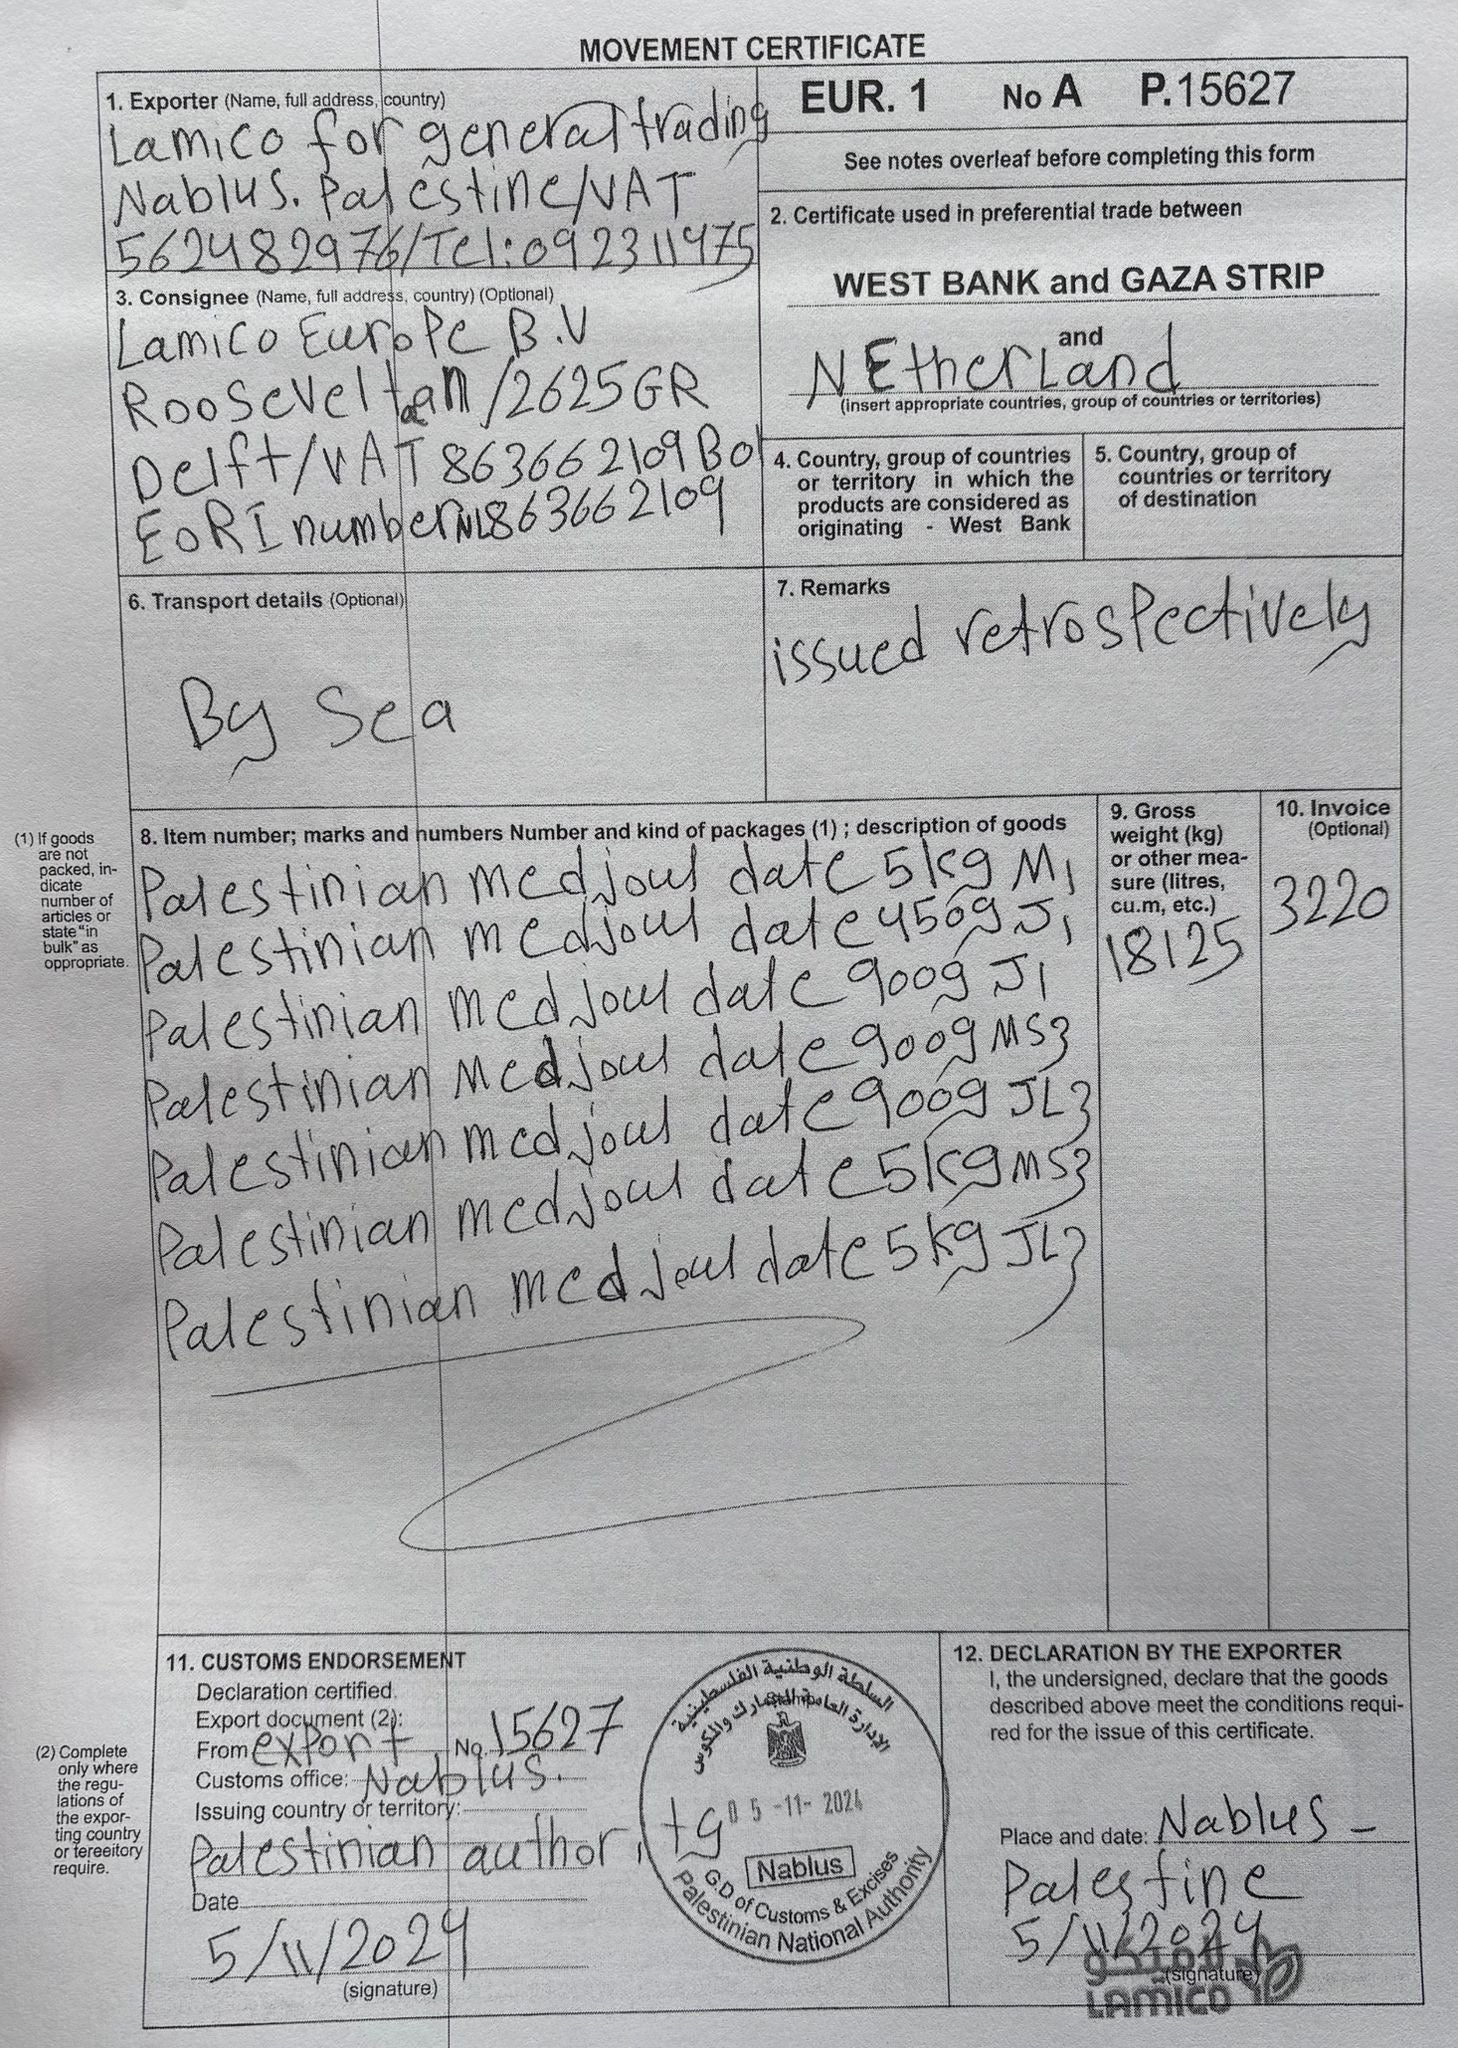 MOVEMENT CERTIFICATE
1. Exporter (Name, full address, country)
Lamico for general trading
Nablus. Palestine/VAT
562482976/Tel:092311475
EUR. 1 No A P.15627
See notes overleaf before completing this form
2. Certificate used in preferential trade between
WEST BANK and GAZA STRIP
and
NEtherLand
(insert appropriate countries, group of countries or territories)
3. Consignee (Name, full address, country) (Optional)
Lamico Europe B.V
Rooseveltlaan/2625GR
Delft/VAT 863662109B01
EoRI number NL863662109
4. Country, group of countries
or territory in which the
products are considered as
originating - West Bank
5. Country, group of
countries or territory
of destination
6. Transport details (Optional)
By Sea
7. Remarks
issued retrospectively
(1) If goods
are not
packed, in-
dicate
number of
articles or
state "in
bulk" as
oppropriate.
8. Item number; marks and numbers Number and kind of packages (1) ; description of goods
Palestinian medjoul date 5kg M1
Palestinian medjoul date 450g J1
Palestinian medjoul date 900g J1
Palestinian Medjoul date 900g MS3
Palestinian medjoul date 900g JL3
Palestinian medjoul date 5kg MS3
Palestinian medjoul date 5kg JL3
9. Gross
weight (kg)
or other mea-
sure (litres,
cu.m, etc.)
18125
10. Invoice
(Optional)
3220
(2) Complete
only where
the regu-
lations of
the expor-
ting country
or tereeitory
require.
11. CUSTOMS ENDORSEMENT
Declaration certified.
Export document (2):
From export No. 15627
Customs office: Nablus.
Issuing country or territory:
Palestinian authority
Date
5/11/2024
(signature)
السلطة الوطنية الفلسطينية
الإدارة العامة للجمارك والمكوس
05-11-2024
Nablus
G.D of Customs & Excises
Palestinian National Authority
12. DECLARATION BY THE EXPORTER
I, the undersigned, declare that the goods
described above meet the conditions requi-
red for the issue of this certificate.
Place and date: Nablus -
Palestine
5/11/2024
(signature)
لاميكو
LAMICO